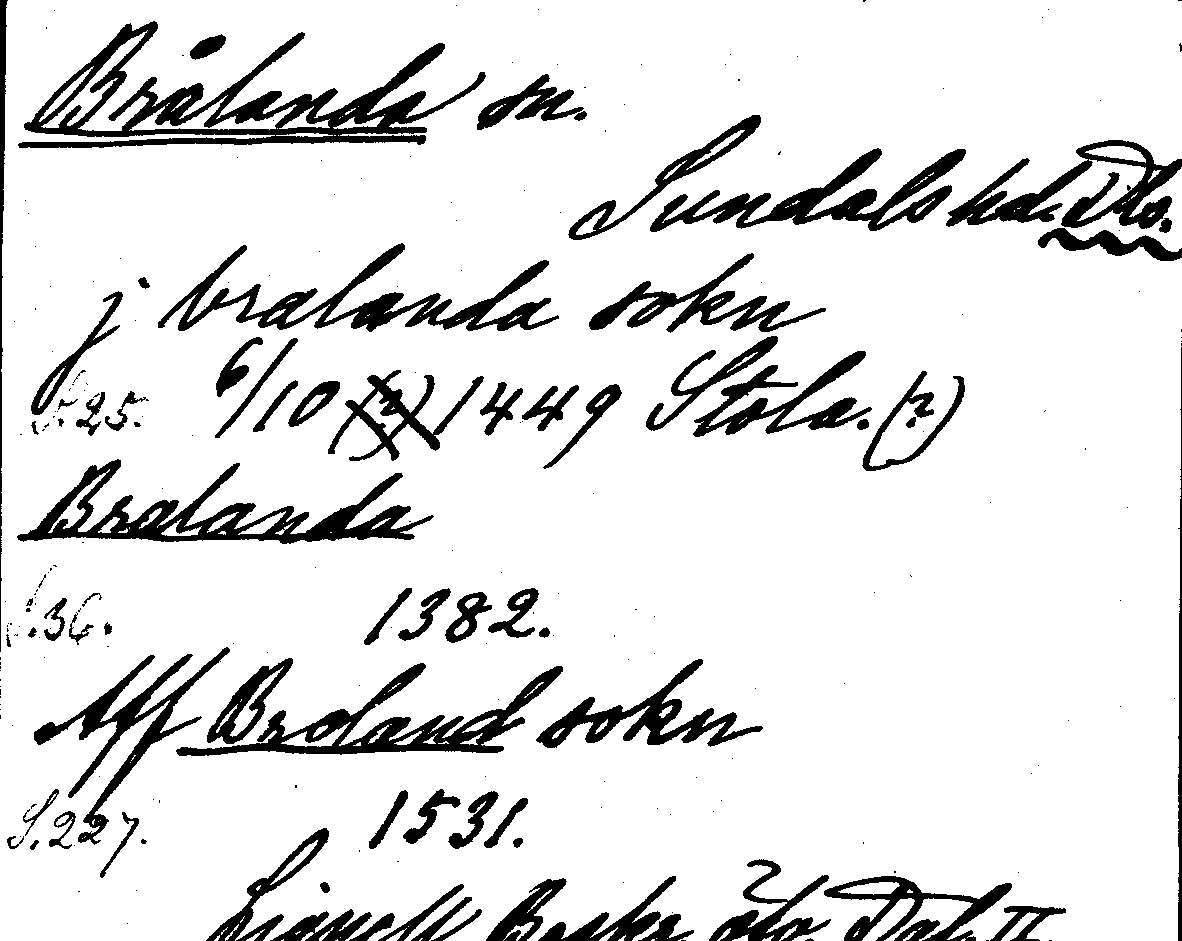 Brålanda sn.
Sundals hd. Dls.
j bralanda sokn
S. 25. 6/10 1449 Stola. (?)
Bralanda
S. 36. 1382.
Aff Broland sokn
S. 227. 1531.
Lignell Beskr. öfv. Dal. II.